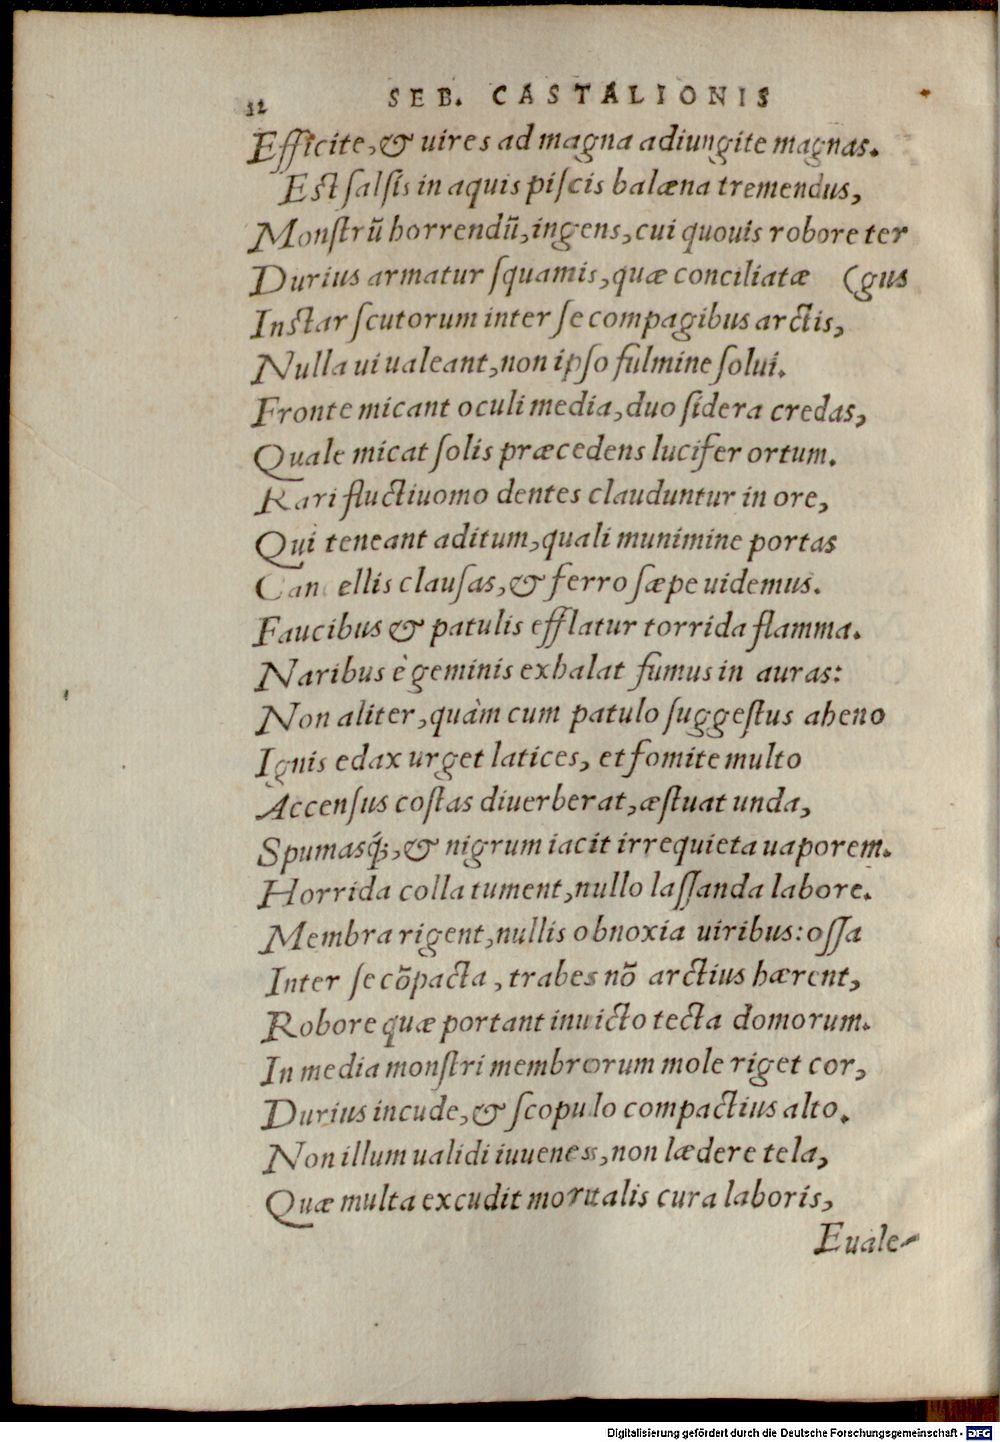 32 SEB. CASTALIONIS
Efficite, & uires ad magna adiungite magnas.
Est salsis in aquis piscis balæna tremendus,
Monstrũ horrendũ, ingens, cui quouis robore ter
Durius armatur squamis, quæ conciliatæ (gus
Instar scutorum inter se compagibus arctis,
Nulla ui ualeant, non ipso fulmine solui.
Fronte micant oculi media, duo sidera credas,
Quale micat solis præcedens lucifer ortum.
Rari fluctiuomo dentes clauduntur in ore,
Qui teneant aditum, quali munimine portas
Cancellis clausas, & ferro sæpe uidemus.
Faucibus & patulis efflatur torrida flamma.
Naribus è geminis exhalat fumus in auras:
Non aliter, quàm cum patulo suggestus aheno
Ignis edax urget latices, et fomite multo
Accensus costas diuerberat, æstuat unda,
Spumasq́;, & nigrum iacit irrequieta uaporem.
Horrida colla tument, nullo lassanda labore.
Membra rigent, nullis obnoxia uiribus: ossa
Inter se cõpacta, trabes nõ arctius hærent,
Robore quæ portant inuicto tecta domorum.
In media monstri membrorum mole riget cor,
Durius incude, & scopulo compactius alto.
Non illum ualidi iuuenes, non lædere tela,
Quæ multa excudit mortalis cura laboris,
Euale-
Digitalisierung gefördert durch die Deutsche Forschungsgemeinschaft - DFG